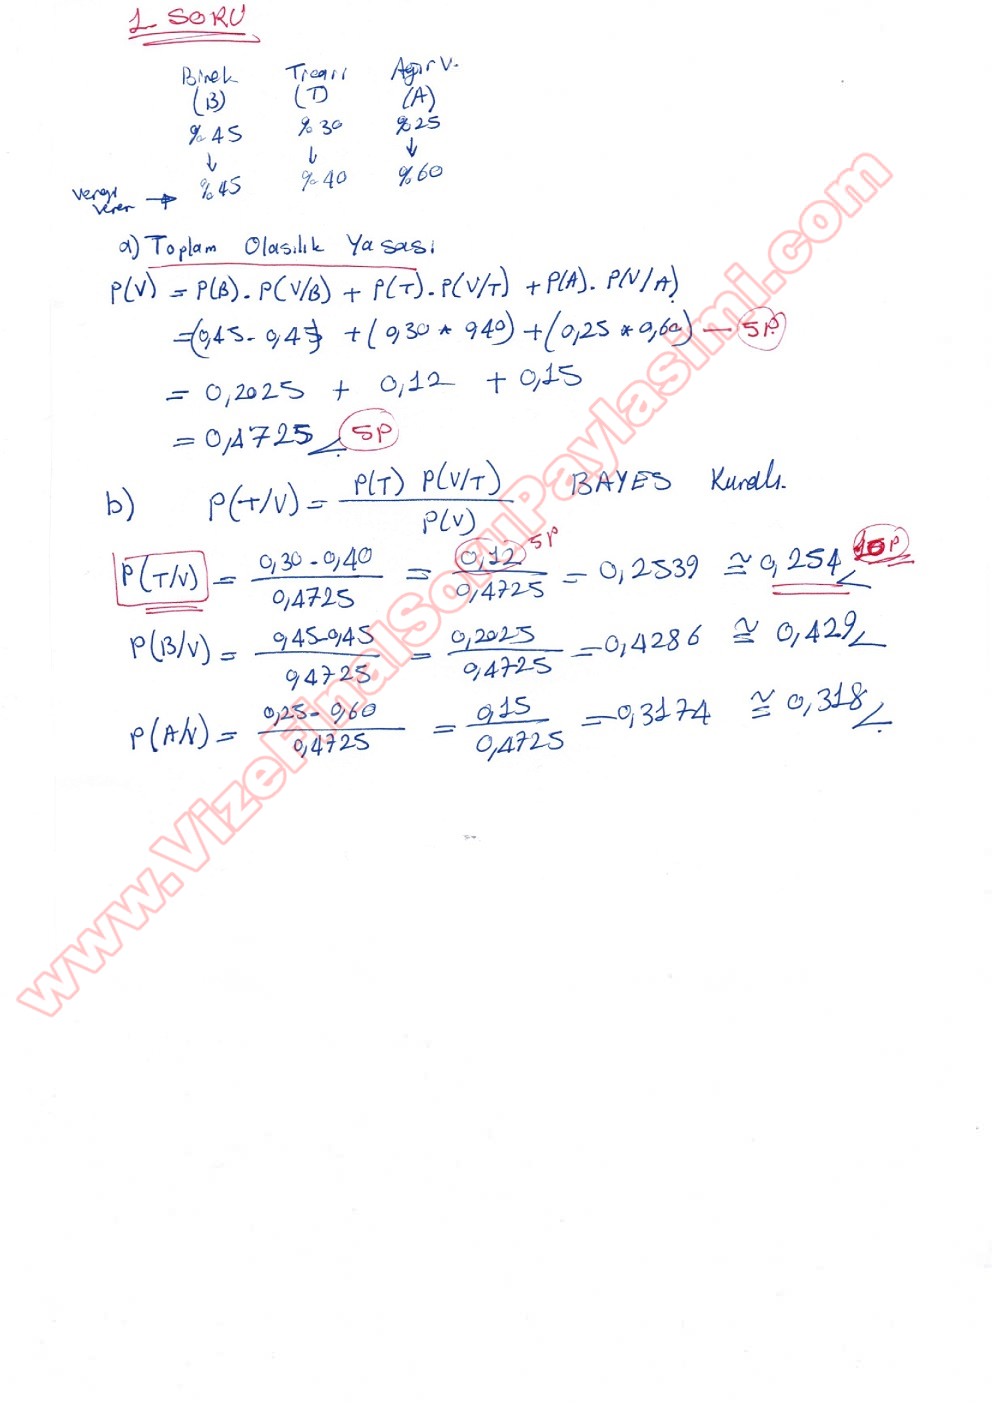 1. SORU
Binek Ticari Ağır V.
(B) (T) (A)
%45 %30 %25
↓ ↓ ↓
Vergi Veren → %45 %40 %60
a) Toplam Olasılık Yasası
P(V) = P(B). P(V/B) + P(T). P(V/T) + P(A). P(V/A)
= (0,45 . 0,45) + (0,30 * 0,40) + (0,25 * 0,60) — 5P.
= 0,2025 + 0,12 + 0,15
= 0,4725 5P
b) P(T/V) = P(T) P(V/T) / P(V) BAYES Kuralı.
P(T/V) = 0,30 . 0,40 / 0,4725 = 0,12 / 0,4725 = 0,2539 ≅ 0,254 5P 10P
P(B/V) = 0,45 . 0,45 / 0,4725 = 0,2025 / 0,4725 = 0,4286 ≅ 0,429
P(A/V) = 0,25 . 0,60 / 0,4725 = 0,15 / 0,4725 = 0,3174 ≅ 0,318
www.VizeFinalSoruPaylasimi.com